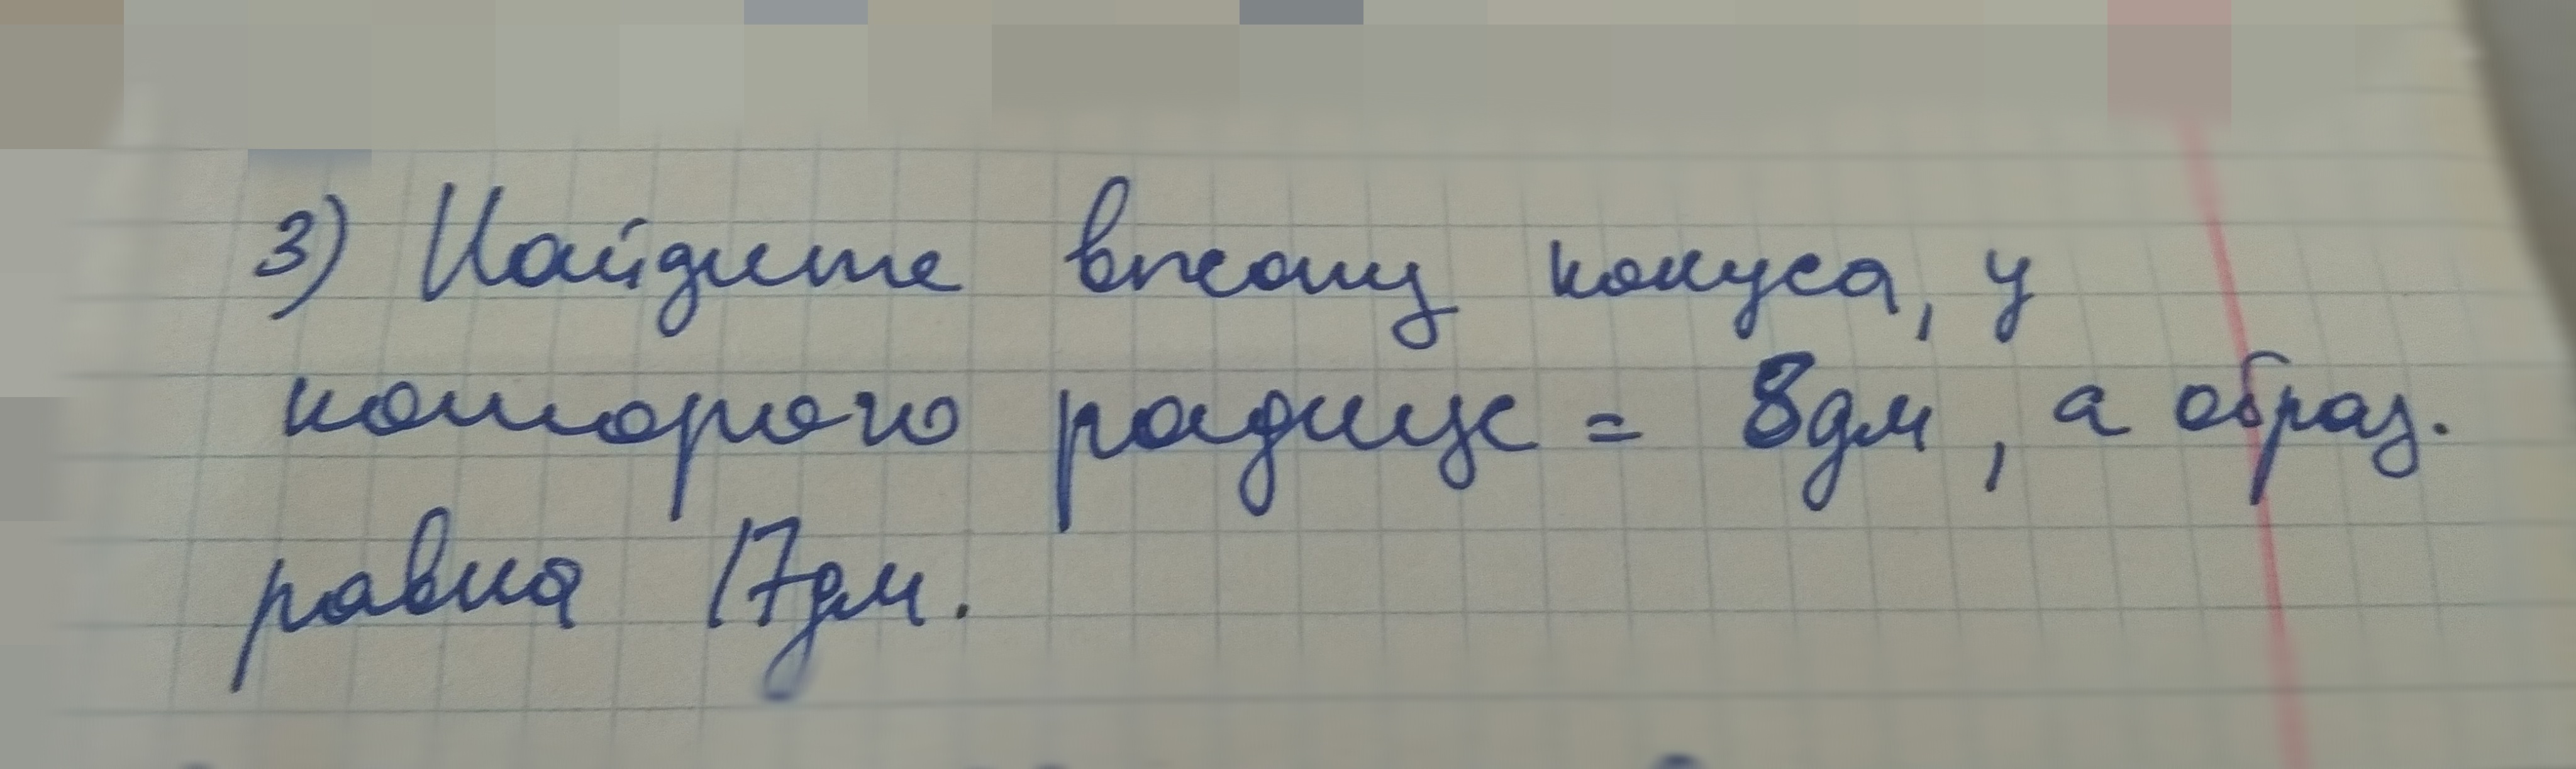 3) Найдите высоту конуса, у
которого радиус = 8дм, а образ.
равна 17дм.